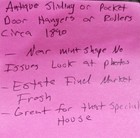 Antique Sliding or Pocket
Door Hangers or Rollers
Circa 1890
- Near mint shape No
Issues Look at photos
- Estate Find Market
Fresh
- Great for that Special
House